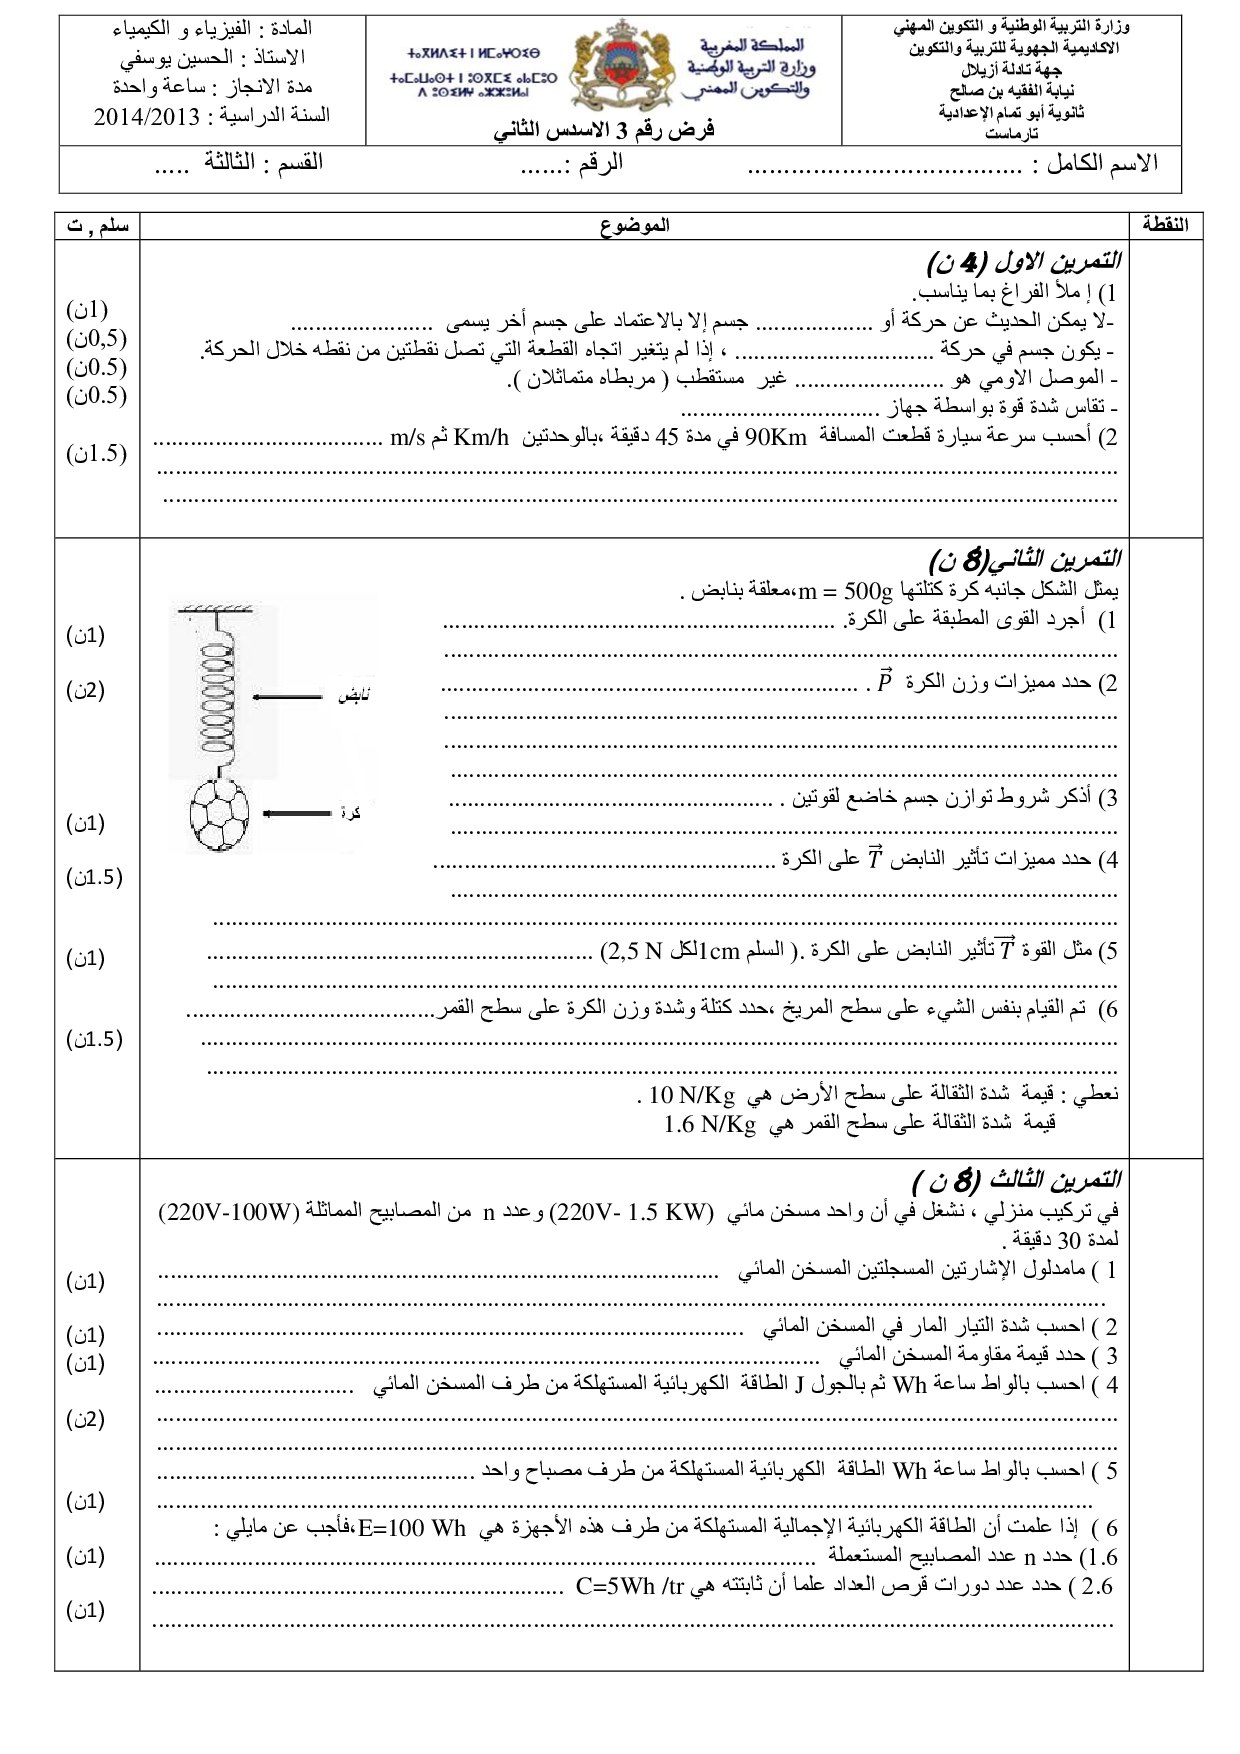 وزارة التربية الوطنية و التكوين المهني
الاكاديمية الجهوية للتربية والتكوين
جهة تادلة أزيلال
نيابة الفقيه بن صالح
ثانوية أبو تمام الإعدادية
تارماست
المملكة المغربية
وزارة التربية الوطنية
والتكوين المهني
ⵜⴰⴳⵍⴷⵉⵜ ⵏ ⵍⵎⴰⵖⵔⵉⴱ
ⵜⴰⵎⴰⵡⴰⵙⵜ ⵏ ⵓⵙⴳⵎⵉ ⴰⵏⴰⵎⵓⵔ
ⴷ ⵓⵙⵎⵓⵜⵜⴳ ⴰⵣⵣⵓⵍⴰⵏ
فرض رقم 3 الاسدس الثاني
المادة : الفيزياء و الكيمياء
الاستاذ : الحسين يوسفي
مدة الانجاز : ساعة واحدة
السنة الدراسية : 2014/2013
الاسم الكامل : ...................................... الرقم :...... القسم : الثالثة .....
النقطة الموضوع سلم , ت
التمرين الاول (4 ن)
1) إ ملأ الفراغ بما يناسب.
-لا يمكن الحديث عن حركة أو ................... جسم إلا بالاعتماد على جسم أخر يسمى ....................... (1ن)
- يكون جسم في حركة ................................ ، إذا لم يتغير اتجاه القطعة التي تصل نقطتين من نقطه خلال الحركة. (0,5ن)
- الموصل الاومي هو ........................ غير مستقطب ( مربطاه متماثلان ). (0.5ن)
- تقاس شدة قوة بواسطة جهاز ................................ (0.5ن)
2) أحسب سرعة سيارة قطعت المسافة 90Km في مدة 45 دقيقة ،بالوحدتين Km/h ثم m/s ..................................... (1.5ن)
التمرين الثاني(8 ن)
يمثل الشكل جانبه كرة كتلتها m = 500g،معلقة بنابض .
1) أجرد القوى المطبقة على الكرة. ............................................................... (1ن)
2) حدد مميزات وزن الكرة P⃗ . ................................................................... (2ن)
نابض
كرة
3) أذكر شروط توازن جسم خاضع لقوتين . .................................................... (1ن)
4) حدد مميزات تأثير النابض T⃗ على الكرة ....................................................... (1.5ن)
5) مثل القوة T⃗ تأثير النابض على الكرة .( السلم 1cm لكل 2,5 N) .............................................................. (1ن)
6) تم القيام بنفس الشيء على سطح المريخ ،حدد كتلة وشدة وزن الكرة على سطح القمر........................................ (1.5ن)
نعطي : قيمة شدة الثقالة على سطح الأرض هي 10 N/Kg .
قيمة شدة الثقالة على سطح القمر هي 1.6 N/Kg
التمرين الثالث (8 ن )
في تركيب منزلي ، نشغل في أن واحد مسخن مائي (220V- 1.5 KW) وعدد n من المصابيح المماثلة (220V-100W)
لمدة 30 دقيقة .
1 ) مامدلول الإشارتين المسجلتين المسخن المائي .......................................................................................... (1ن)
2 ) احسب شدة التيار المار في المسخن المائي .............................................................................................. (1ن)
3 ) حدد قيمة مقاومة المسخن المائي ........................................................................................................... (1ن)
4 ) احسب بالواط ساعة Wh ثم بالجول J الطاقة الكهربائية المستهلكة من طرف المسخن المائي ................................ (2ن)
5 ) احسب بالواط ساعة Wh الطاقة الكهربائية المستهلكة من طرف مصباح واحد ................................................... (1ن)
6 ) إذا علمت أن الطاقة الكهربائية الإجمالية المستهلكة من طرف هذه الأجهزة هي E=100 Wh،فأجب عن مايلي :
1.6) حدد n عدد المصابيح المستعملة .......................................................................................................... (1ن)
2.6 ) حدد عدد دورات قرص العداد علما أن ثابتته هي C=5Wh /tr .................................................................. (1ن)